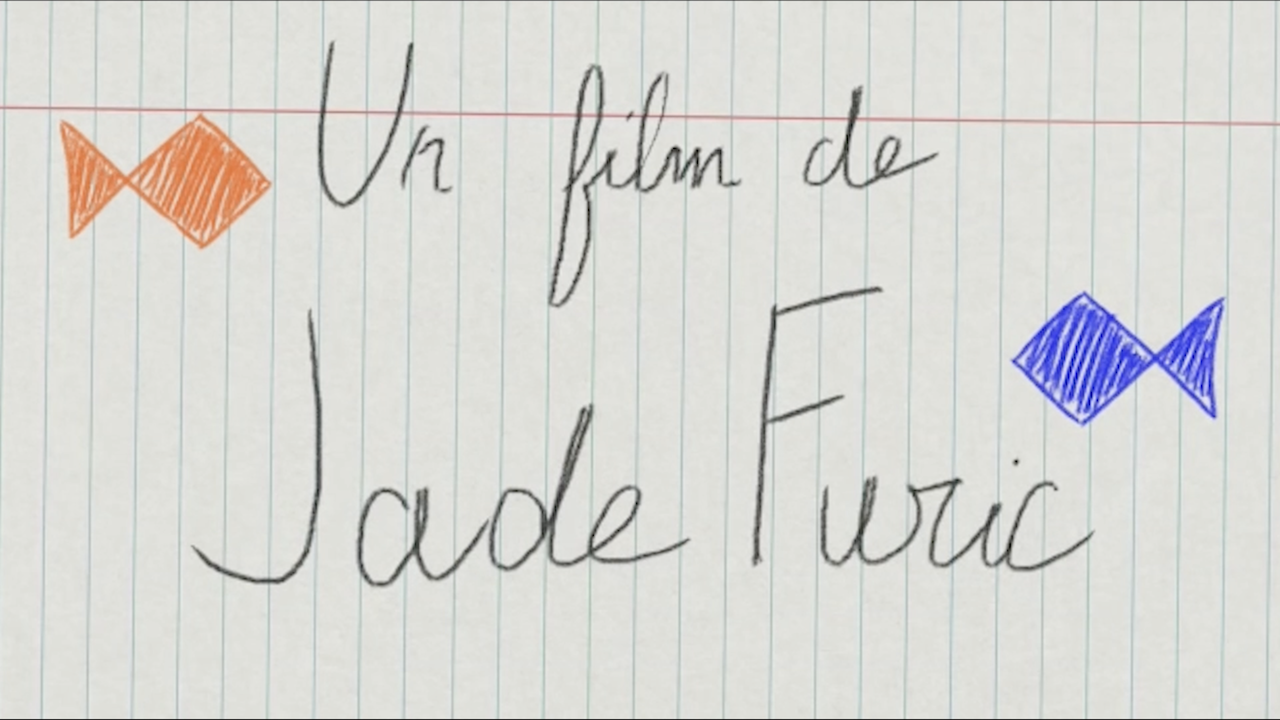 Un film de
Jade Furic